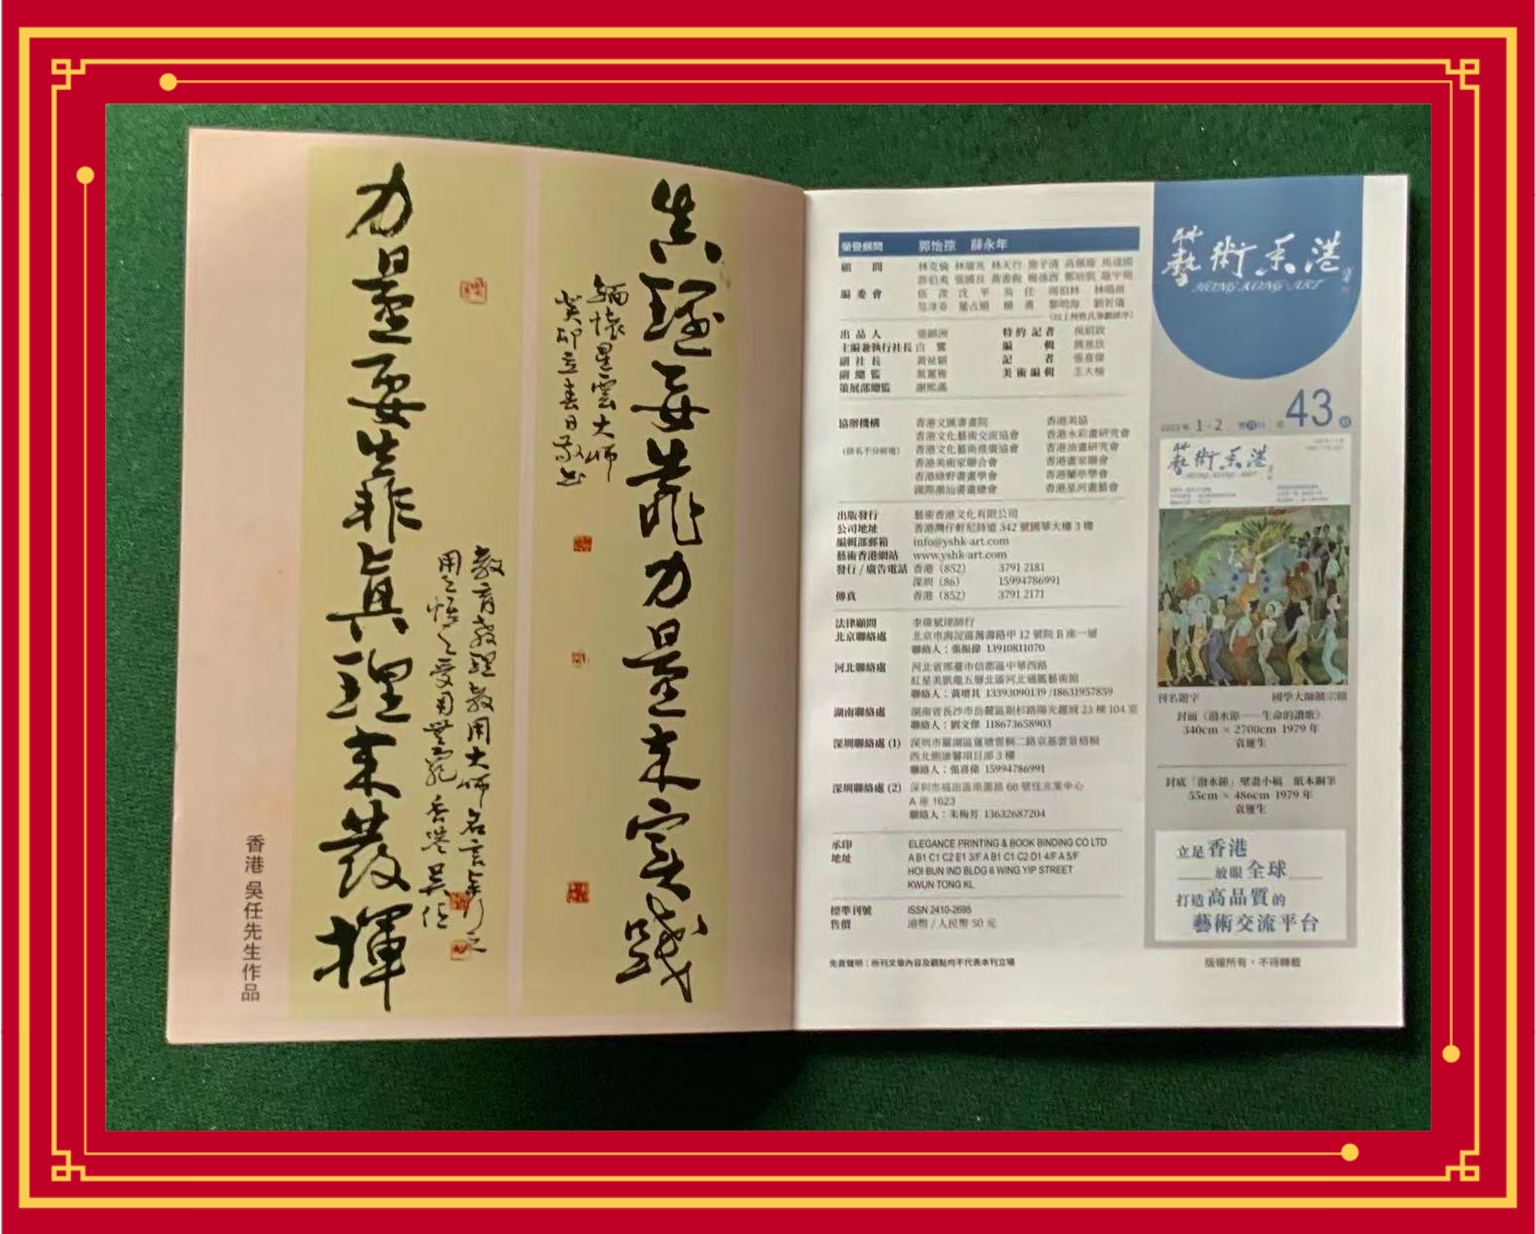 真理要靠力量来實踐
緬懷星雲大師
癸卯立春日敬书
力量要靠真理来發揮
用之悟之受用無窮 香港吴任
香港 吳任先生作品
榮譽顧問 郭怡孮 薛永年
顧 問
編委會
出品人
特約記者
主編兼執行社長
編 輯
副社長
記 者
副總監
美術編輯
策展部總監
協辦機構 香港文匯書畫院 香港美協
香港文化藝術交流協會 香港水彩畫研究會
(排名不分前後) 香港文化藝術推廣協會 香港油畫研究會
香港美術家聯合會 香港畫家聯會
香港綠野書畫學會 香港蘭亭學會
國際潮汕書畫總會 香港星河畫藝會
出版發行 藝術香港文化有限公司
公司地址 香港灣仔軒尼詩道 342 號國華大樓 3 樓
編輯部郵箱 info@yshk-art.com
藝術香港網站 www.yshk-art.com
發行 / 廣告電話 香港 (852) 3791 2181
深圳 (86) 15994786991
傳真 香港 (852) 3791 2171
法律顧問 李偉斌律師行
北京聯絡處 北京市海淀區萬壽路甲 12 號院 B 座一層
聯絡人：張振偉 13910811070
河北聯絡處 河北省邢臺市信都區中華西路
紅星美凱龍五層北區河北通鳳藝術館
聯絡人：黃增其 13393090139 /18631957859
湖南聯絡處 湖南省長沙市岳麓區銀杉路陽光麗城 23 棟 104 室
聯絡人：劉文傑 118673658903
深圳聯絡處 (1) 深圳市羅湖區蓮塘雲桐二路京基雲景梧桐
西北側康馨項目部 3 樓
聯絡人：張喜偉 15994786991
深圳聯絡處 (2) 深圳市福田區南園路 66 號佳兆業中心
A 座 1623
聯絡人：朱梅芳 13632687204
承印 ELEGANCE PRINTING & BOOK BINDING CO LTD
地址 A B1 C1 C2 E1 3/F A B1 C1 C2 D1 4/F A 5/F
HOI BUN IND BLDG 6 WING YIP STREET
KWUN TONG KL
標準刊號 ISSN 2410-2695
售價 港幣 / 人民幣 50 元
免責聲明：所刊文章內容及觀點均不代表本刊立場
藝術香港
HONG KONG ART
2023 年 1 - 2 雙月刊 第 43 期
藝術香港
HONG KONG ART
刊名題字 國學大師饒宗頤
封面《潑水節——生命的讚歌》
340cm × 2700cm 1979 年
袁運生
封底「潑水節」壁畫小稿 紙本鋼筆
55cm × 486cm 1979 年
袁運生
立足 香港
放眼 全球
打造 高品質 的
藝術交流平台
版權所有，不得轉載